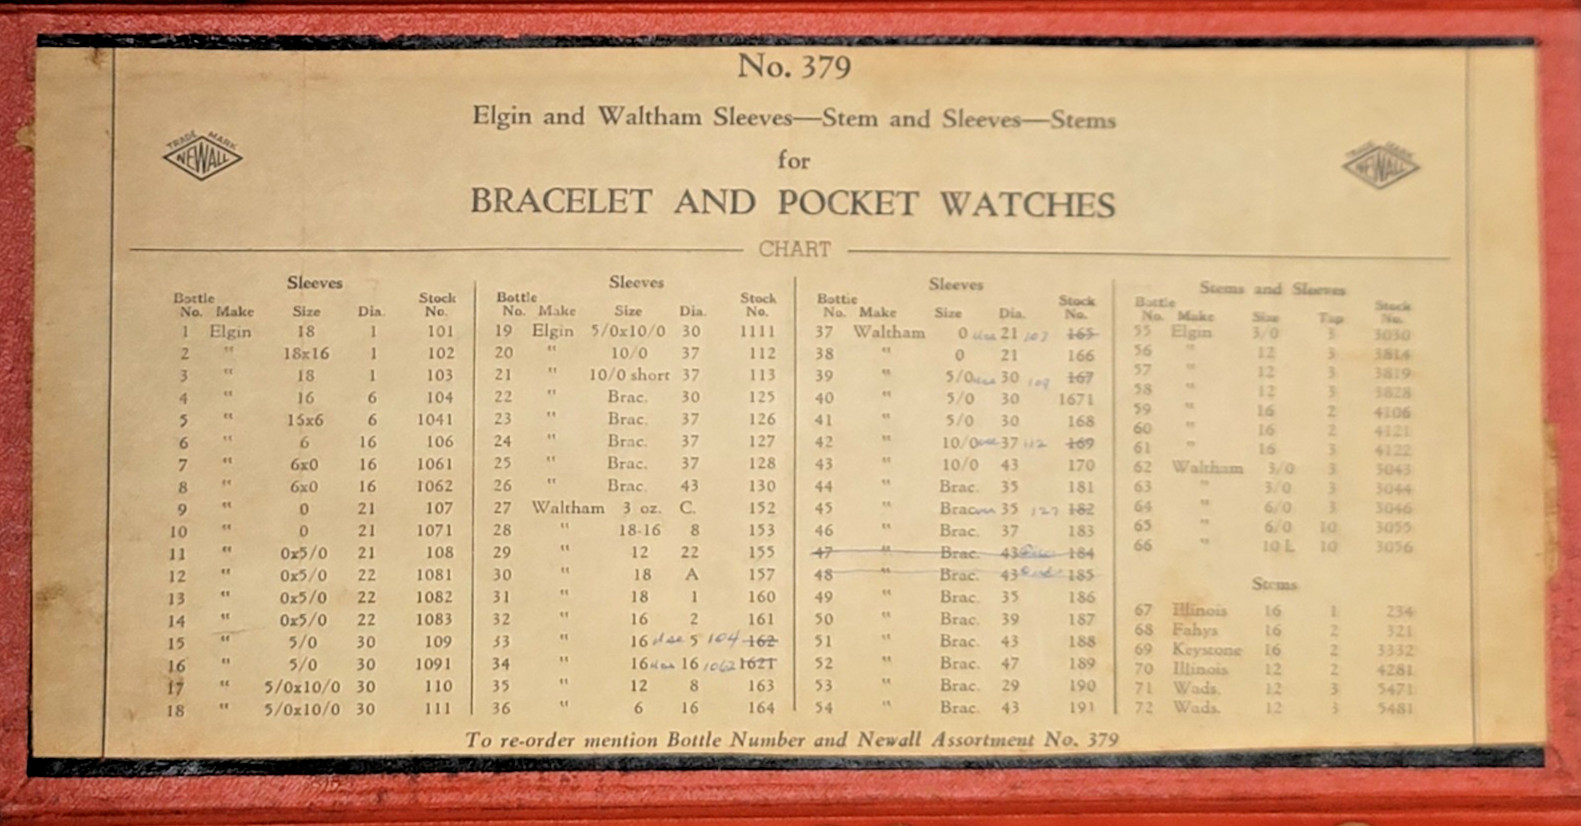 No. 379
Elgin and Waltham Sleeves—Stem and Sleeves—Stems
TRADE MARK
NEWALL
for
TRADE MARK
NEWALL
BRACELET AND POCKET WATCHES
CHART
Sleeves
Bottle No. Make Size Dia. Stock No.
1 Elgin 18 1 101
2 " 18x16 1 102
3 " 18 1 103
4 " 16 6 104
5 " 15x6 6 1041
6 " 6 16 106
7 " 6x0 16 1061
8 " 6x0 16 1062
9 " 0 21 107
10 " 0 21 1071
11 " 0x5/0 21 108
12 " 0x5/0 22 1081
13 " 0x5/0 22 1082
14 " 0x5/0 22 1083
15 " 5/0 30 109
16 " 5/0 30 1091
17 " 5/0x10/0 30 110
18 " 5/0x10/0 30 111
Sleeves
Bottle No. Make Size Dia. Stock No.
19 Elgin 5/0x10/0 30 1111
20 " 10/0 37 112
21 " 10/0 short 37 113
22 " Brac. 30 125
23 " Brac. 37 126
24 " Brac. 37 127
25 " Brac. 37 128
26 " Brac. 43 130
27 Waltham 3 oz. C. 152
28 " 18-16 8 153
29 " 12 22 155
30 " 18 A 157
31 " 18 1 160
32 " 16 2 161
33 " 16 use 5 104 162
34 " 16 use 16 1062 1621
35 " 12 8 163
36 " 6 16 164
Sleeves
Bottle No. Make Size Dia. Stock No.
37 Waltham 0 use 21 107 165
38 " 0 21 166
39 " 5/0 use 30 109 167
40 " 5/0 30 1671
41 " 5/0 30 168
42 " 10/0 use 37 112 169
43 " 10/0 43 170
44 " Brac. 35 181
45 " Brac. use 35 127 182
46 " Brac. 37 183
47 " Brac. 43 184
48 " Brac. 43 185
49 " Brac. 35 186
50 " Brac. 39 187
51 " Brac. 43 188
52 " Brac. 47 189
53 " Brac. 29 190
54 " Brac. 43 191
Stems and Sleeves
Bottle No. Make Size Tap Stock No.
55 Elgin 3/0 3 3030
56 " 12 3 3814
57 " 12 3 3819
58 " 12 3 3828
59 " 16 2 4106
60 " 16 2 4121
61 " 16 3 4122
62 Waltham 3/0 3 3043
63 " 3/0 3 3044
64 " 6/0 3 3046
65 " 6/0 10 3055
66 " 10 L 10 3056
Stems
67 Illinois 16 1 234
68 Fahys 16 2 321
69 Keystone 16 2 3332
70 Illinois 12 2 4281
71 Wads. 12 3 5471
72 Wads. 12 3 5481
To re-order mention Bottle Number and Newall Assortment No. 379